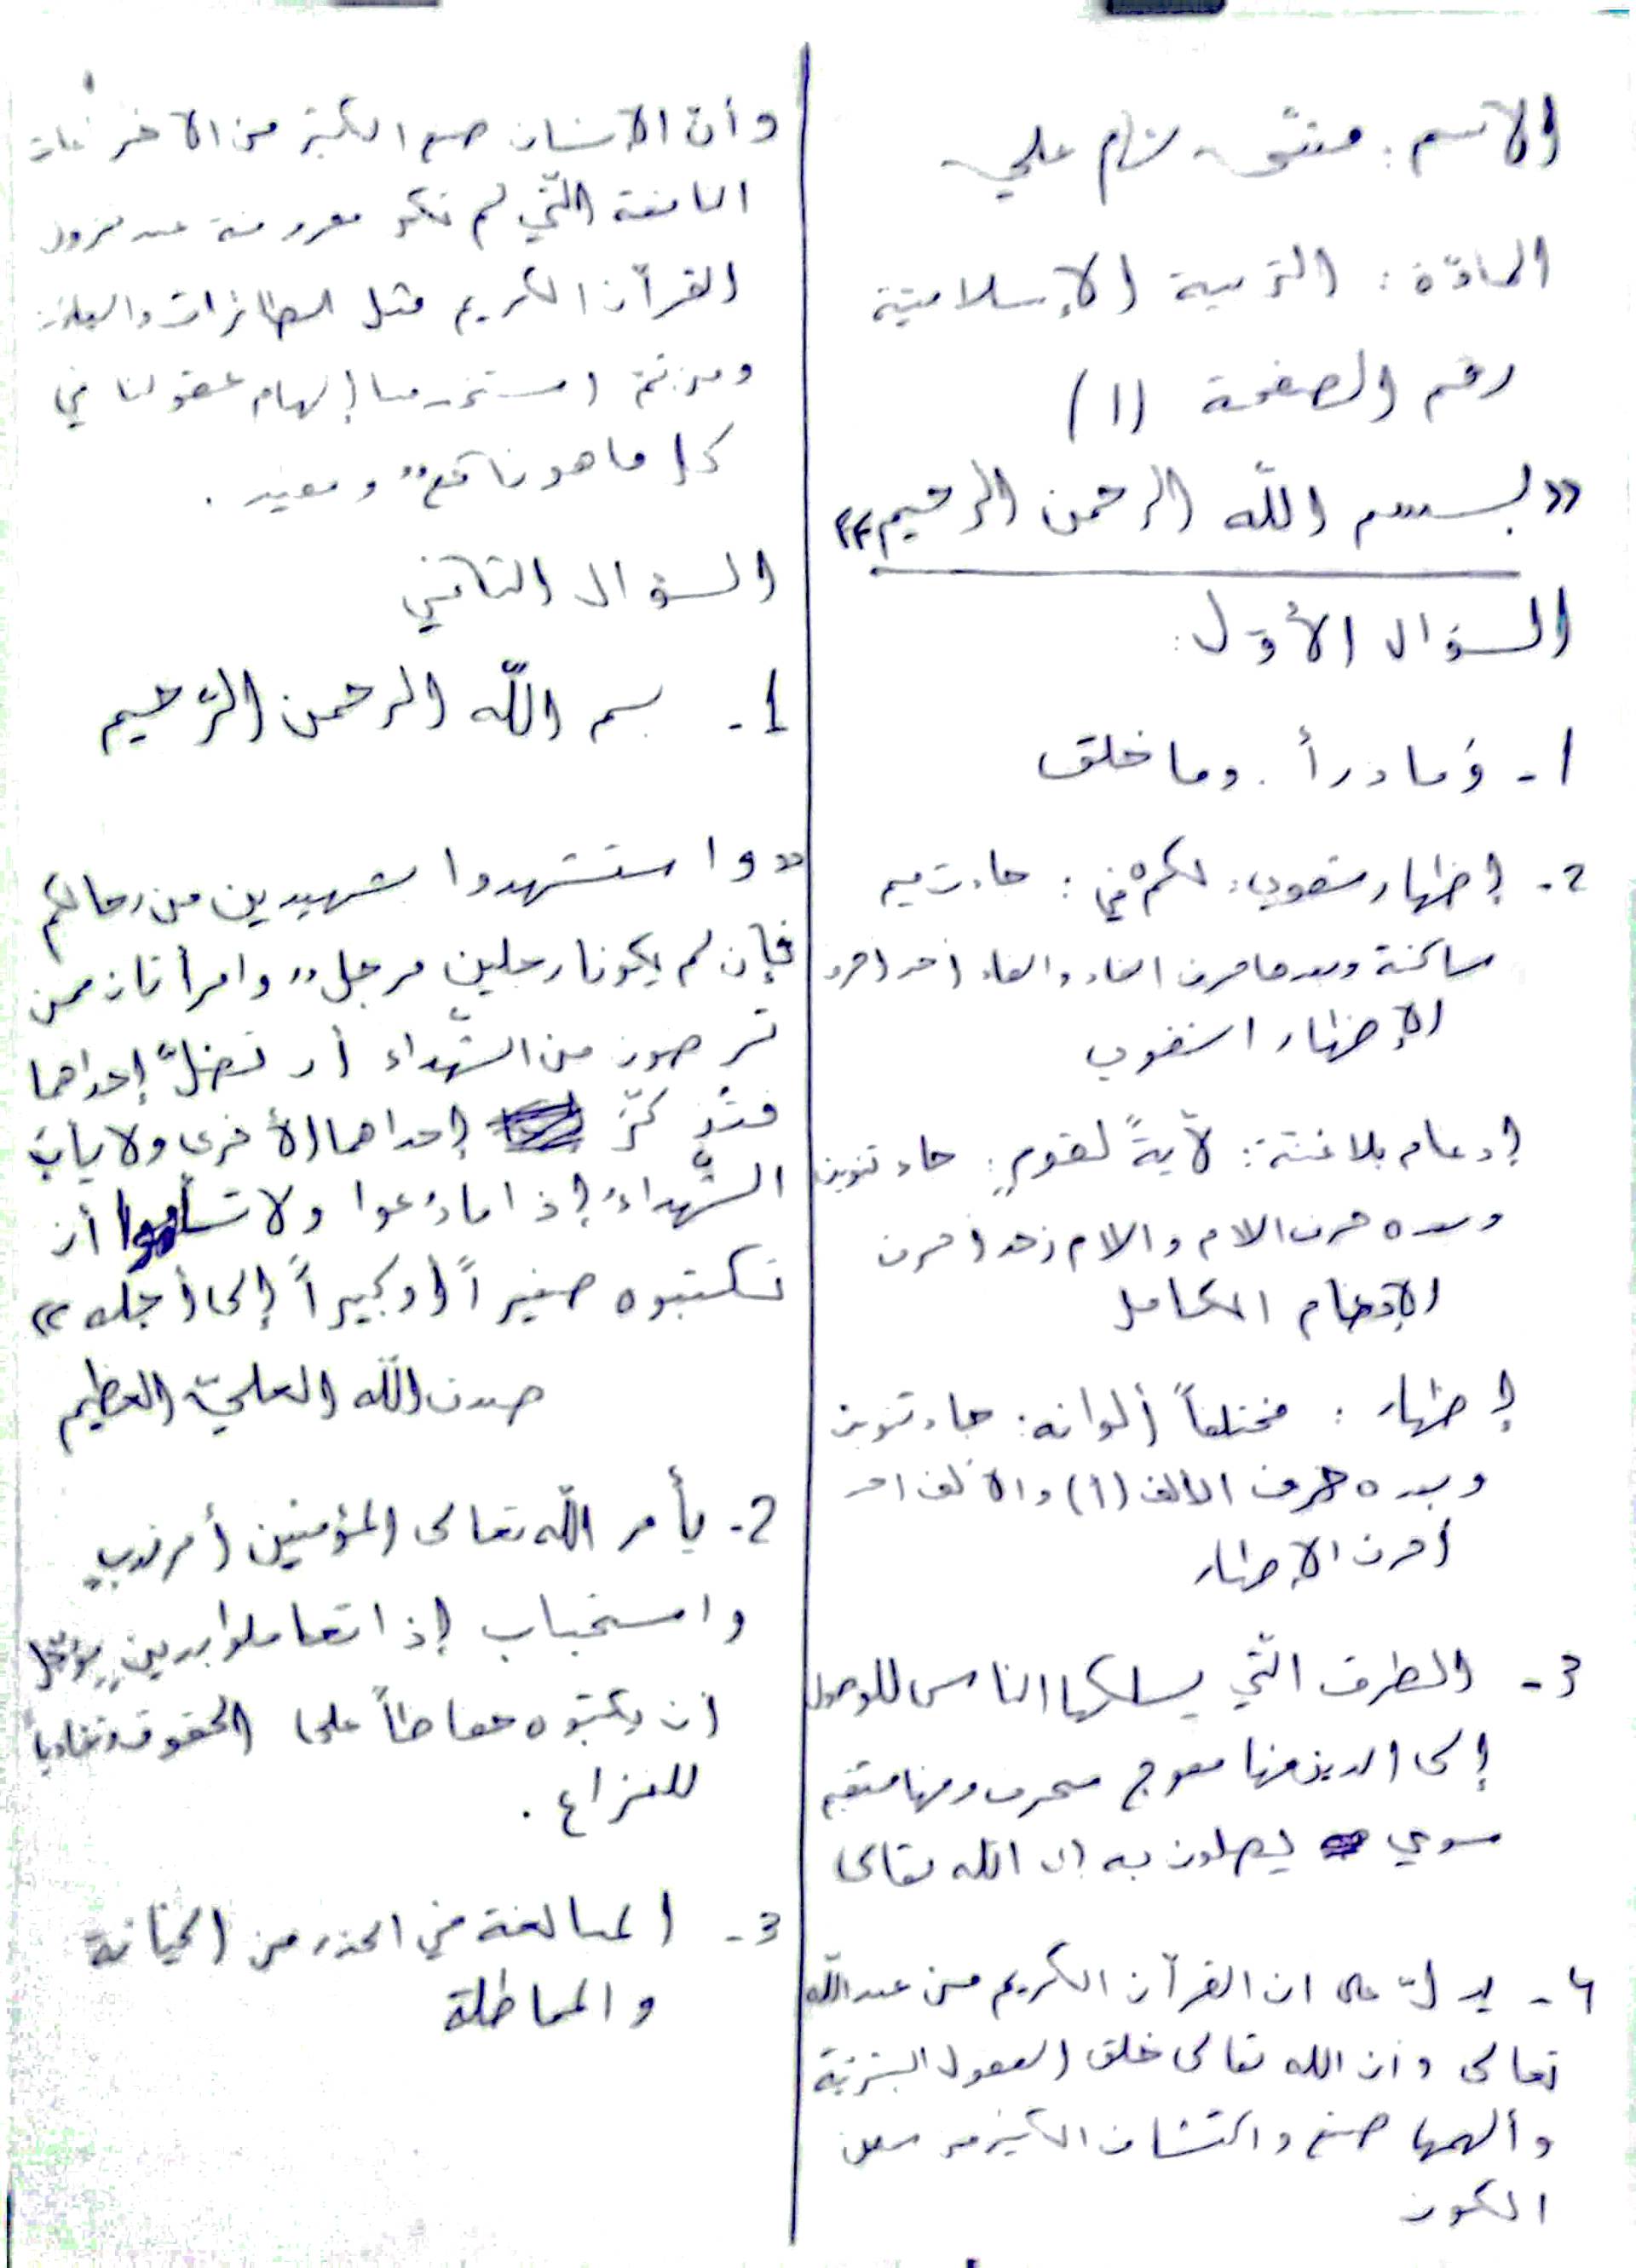 الاسم: علي
المادّة: التربية الإسلاميّة
رقم الصفحة (1)
«بسم اللّه الرحمن الرحيم»
السؤال الأوّل:
1- وما ذرأ. وما خلق
2- إظهار شفوي: لكم في: جاءت ميم
ساكنة وبعدها حرف الفاء والفاء أحد أحرف
الإظهار الشفوي
إدغام بلا غنّة: لآيةً لقومٍ: جاء تنوين
وبعده حرف الام والام أحد أحرف
الإدغام الكامل
إظهار: مختلفاً ألوانه: جاء تنوين
وبعده حرف الالف (أ) والألف احد
أحرف الإظهار
3- الطرق التّي يسلكها الناس للوصول
إلى الدين منها معوج منحرف ومنها مستقيم
سوي يصلون به الى الله تعالى
4- يدلّ على ان القرآن الكريم من عند اللّه
تعالى وان الله تعالى خلق العقول البشريّة
وألهمها صنع واكتشاف الكثير من
الكون
وأن الانسان صنع الكثير من الاختراعات
النافعة التّي لم تكن معروفة عند نزول
القرآن الكريم مثل الطائرات
ومن ثمّ استخدمنا إلهام عقولنا في
كل ما هو نافعٌ ومفيد.
السؤال الثاني
1- بسم اللّه الرحمن الرّحيم
«واستشهدوا شهيدين من رجالكم
فإن لم يكونا رجلين فرجلٌ وامرأتان ممن
ترضون من الشّهداء أن تضلّ إحداهما
فتذكّر إحداهما الأخرى ولا يأب
الشّهداء إذا ما دُعوا ولا تسأموا أن
تكتبوه صغيراً أو كبيراً إلى أجله»
صدق اللّه العليّ العظيم
2- يأمر اللّه تعالى المؤمنين أمر ندبٍ
واستحباب إذا تعاملوا بدينٍ مؤجّل
أن يكتبوه حفاظاً على الحقوق وتفاديا
للنزاع.
3- المبالغة في الحذر من الخيانة
والمماطلة